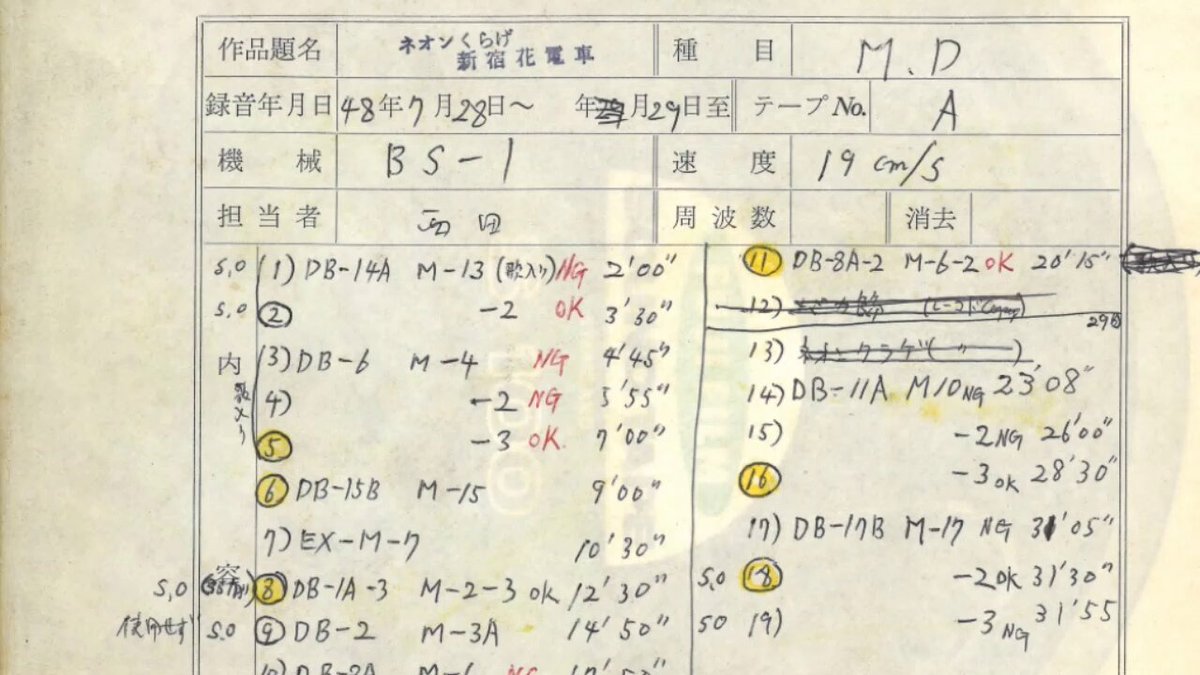 作品題名 ネオンくらげ 新宿花電車 種目 M.D
録音年月日 48年7月28日〜 年 月29日至 テープNo. A
機械 BS-1 速度 19cm/s
担当者 西田 周波数 消去
内容
S,O (1) DB-14A M-13 (歌入り) NG 2'00"
S,O (2) -2 OK 3'30"
(3) DB-6 M-4 NG 4'45"
歌入り
4) -2 NG 5'55"
5 -3 OK. 7'00"
6) DB-15B M-15 9'00"
7) EX-M-7 10'30"
S,O 8) DB-1A-3 M-2-3 OK 12'30"
使用せず S.O 9 DB-2 M-3A 14'50"
11) DB-8A-2 M-6-2 OK 20'15"
12)
29日
13) ネオンクラゲ( 〃 )
14) DB-11A M10 NG 23'08"
15) -2 NG 26'00"
16 -3 OK 28'30"
17) DB-17B M-17 NG 31'05"
S,O 18 -2 OK 31'30"
SO 19) -3 NG 31'55